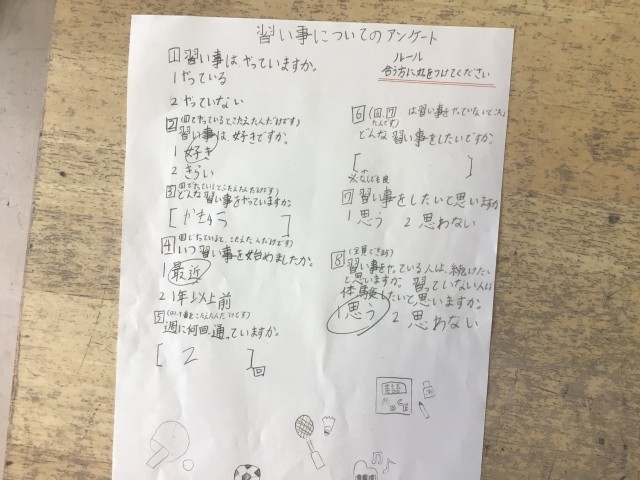 習い事についてのアンケート
ルール
合う方に丸をつけてください
1 習い事は、やっていますか。
1 やっている
2 やっていない
2 (1でやっているとこたえた人だけです)
習い事は好きですか。
1 好き
2 きらい
3 (1でやっているとこたえた人だけです)
どんな習い事をやっていますか。
[ ]
4 (1でやっていると、こたえた人だけです)
いつ習い事を始めましたか。
1 最近
2 1年以上前
5
週に何回通っていますか。
[ 2 ]回
6 は習い事をやっていないとこた
た人です)
どんな習い事をしたいですか。
[ ]
※なしでも良
7 習い事をしたいと思いますか
1 思う 2 思わない
8 (全員)
習い事をやっている人は、続けたい
と思いますか。習っていない人は
体験したいと思いますか。
1 思う 2 思わない